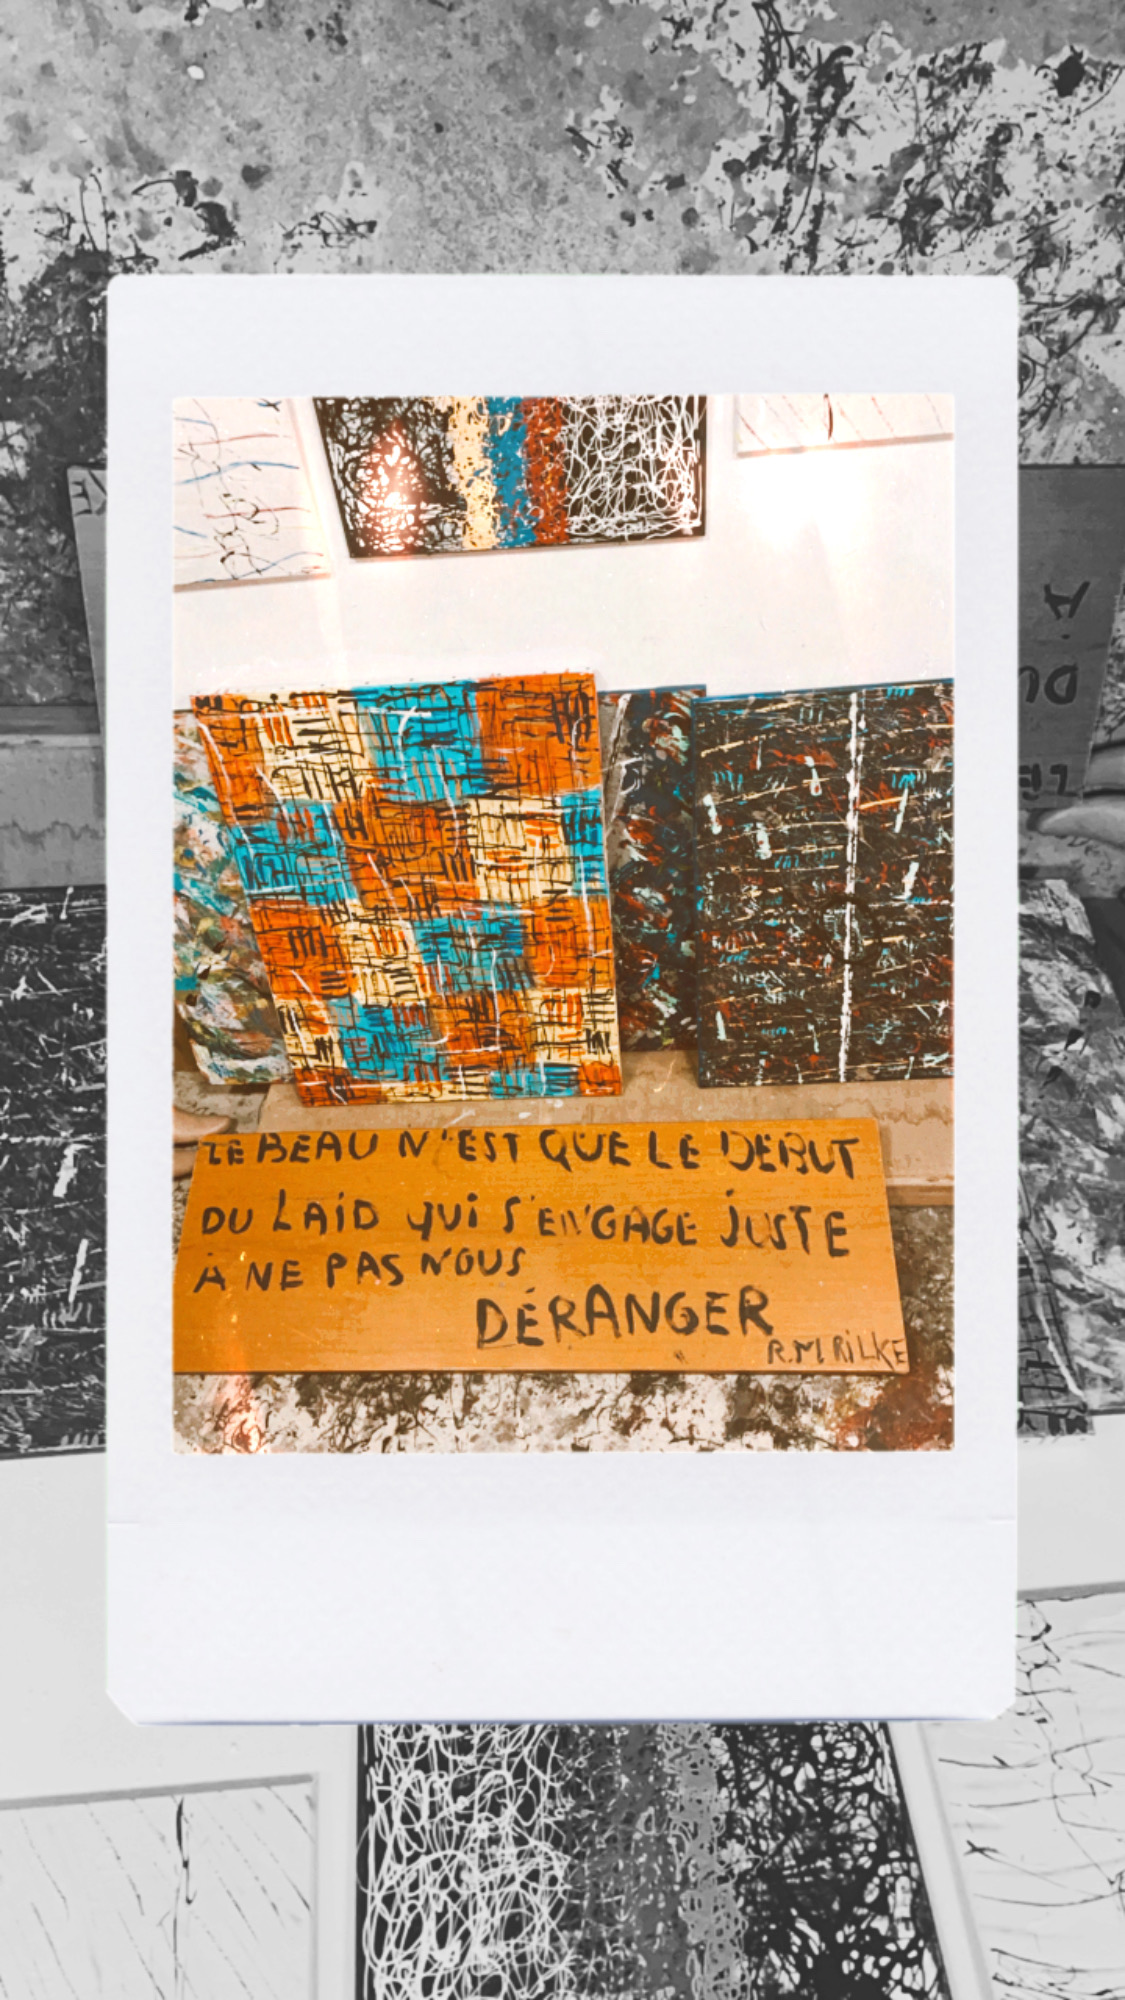 LE BEAU N'EST QUE LE DEBUT
DU LAiD qui S'ENGAGE JUSTE
À NE PAS NOUS
DÉRANGER
R.M RiLKE
À
DU
LE